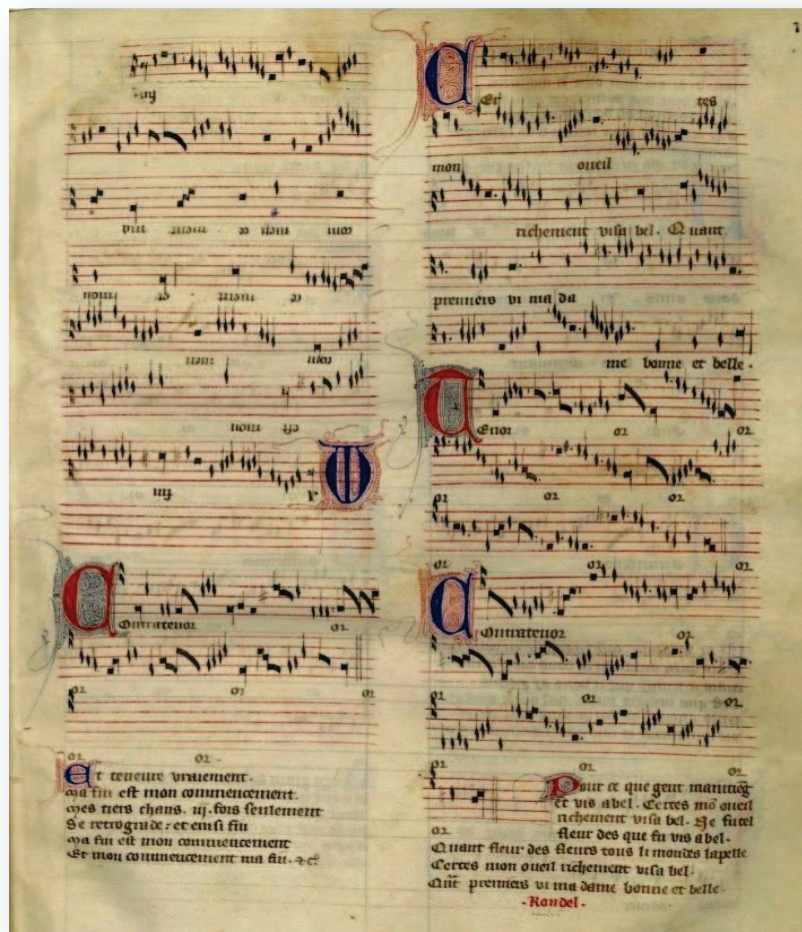 fin
com men ce ment ma
ce ment et mon
com men
est mon
fin
M A
Contratenor
Et teneure vraiement.
Ma fin est mon commencement.
Mes tiers chans .iij. fois seulement
Se retrograde et einsi fin
Ma fin est mon commencement
Et mon commencement ma fin. &c.
Cer tes
mon oueil
richement visa bel. Quant
premiers vi ma da
me bonne et belle.
Tenor
Contratenor
Pour ce que gent maintieg
et vis a bel. Certes mõ oueil
richement visa bel. Ne fu tel
fleur des que fu vis abel.
Quant fleur des fleurs tous li mondes lapelle
Certes mon oueil richement visa bel.
Quãt premiers vi ma dame bonne et belle.
·Rondel·